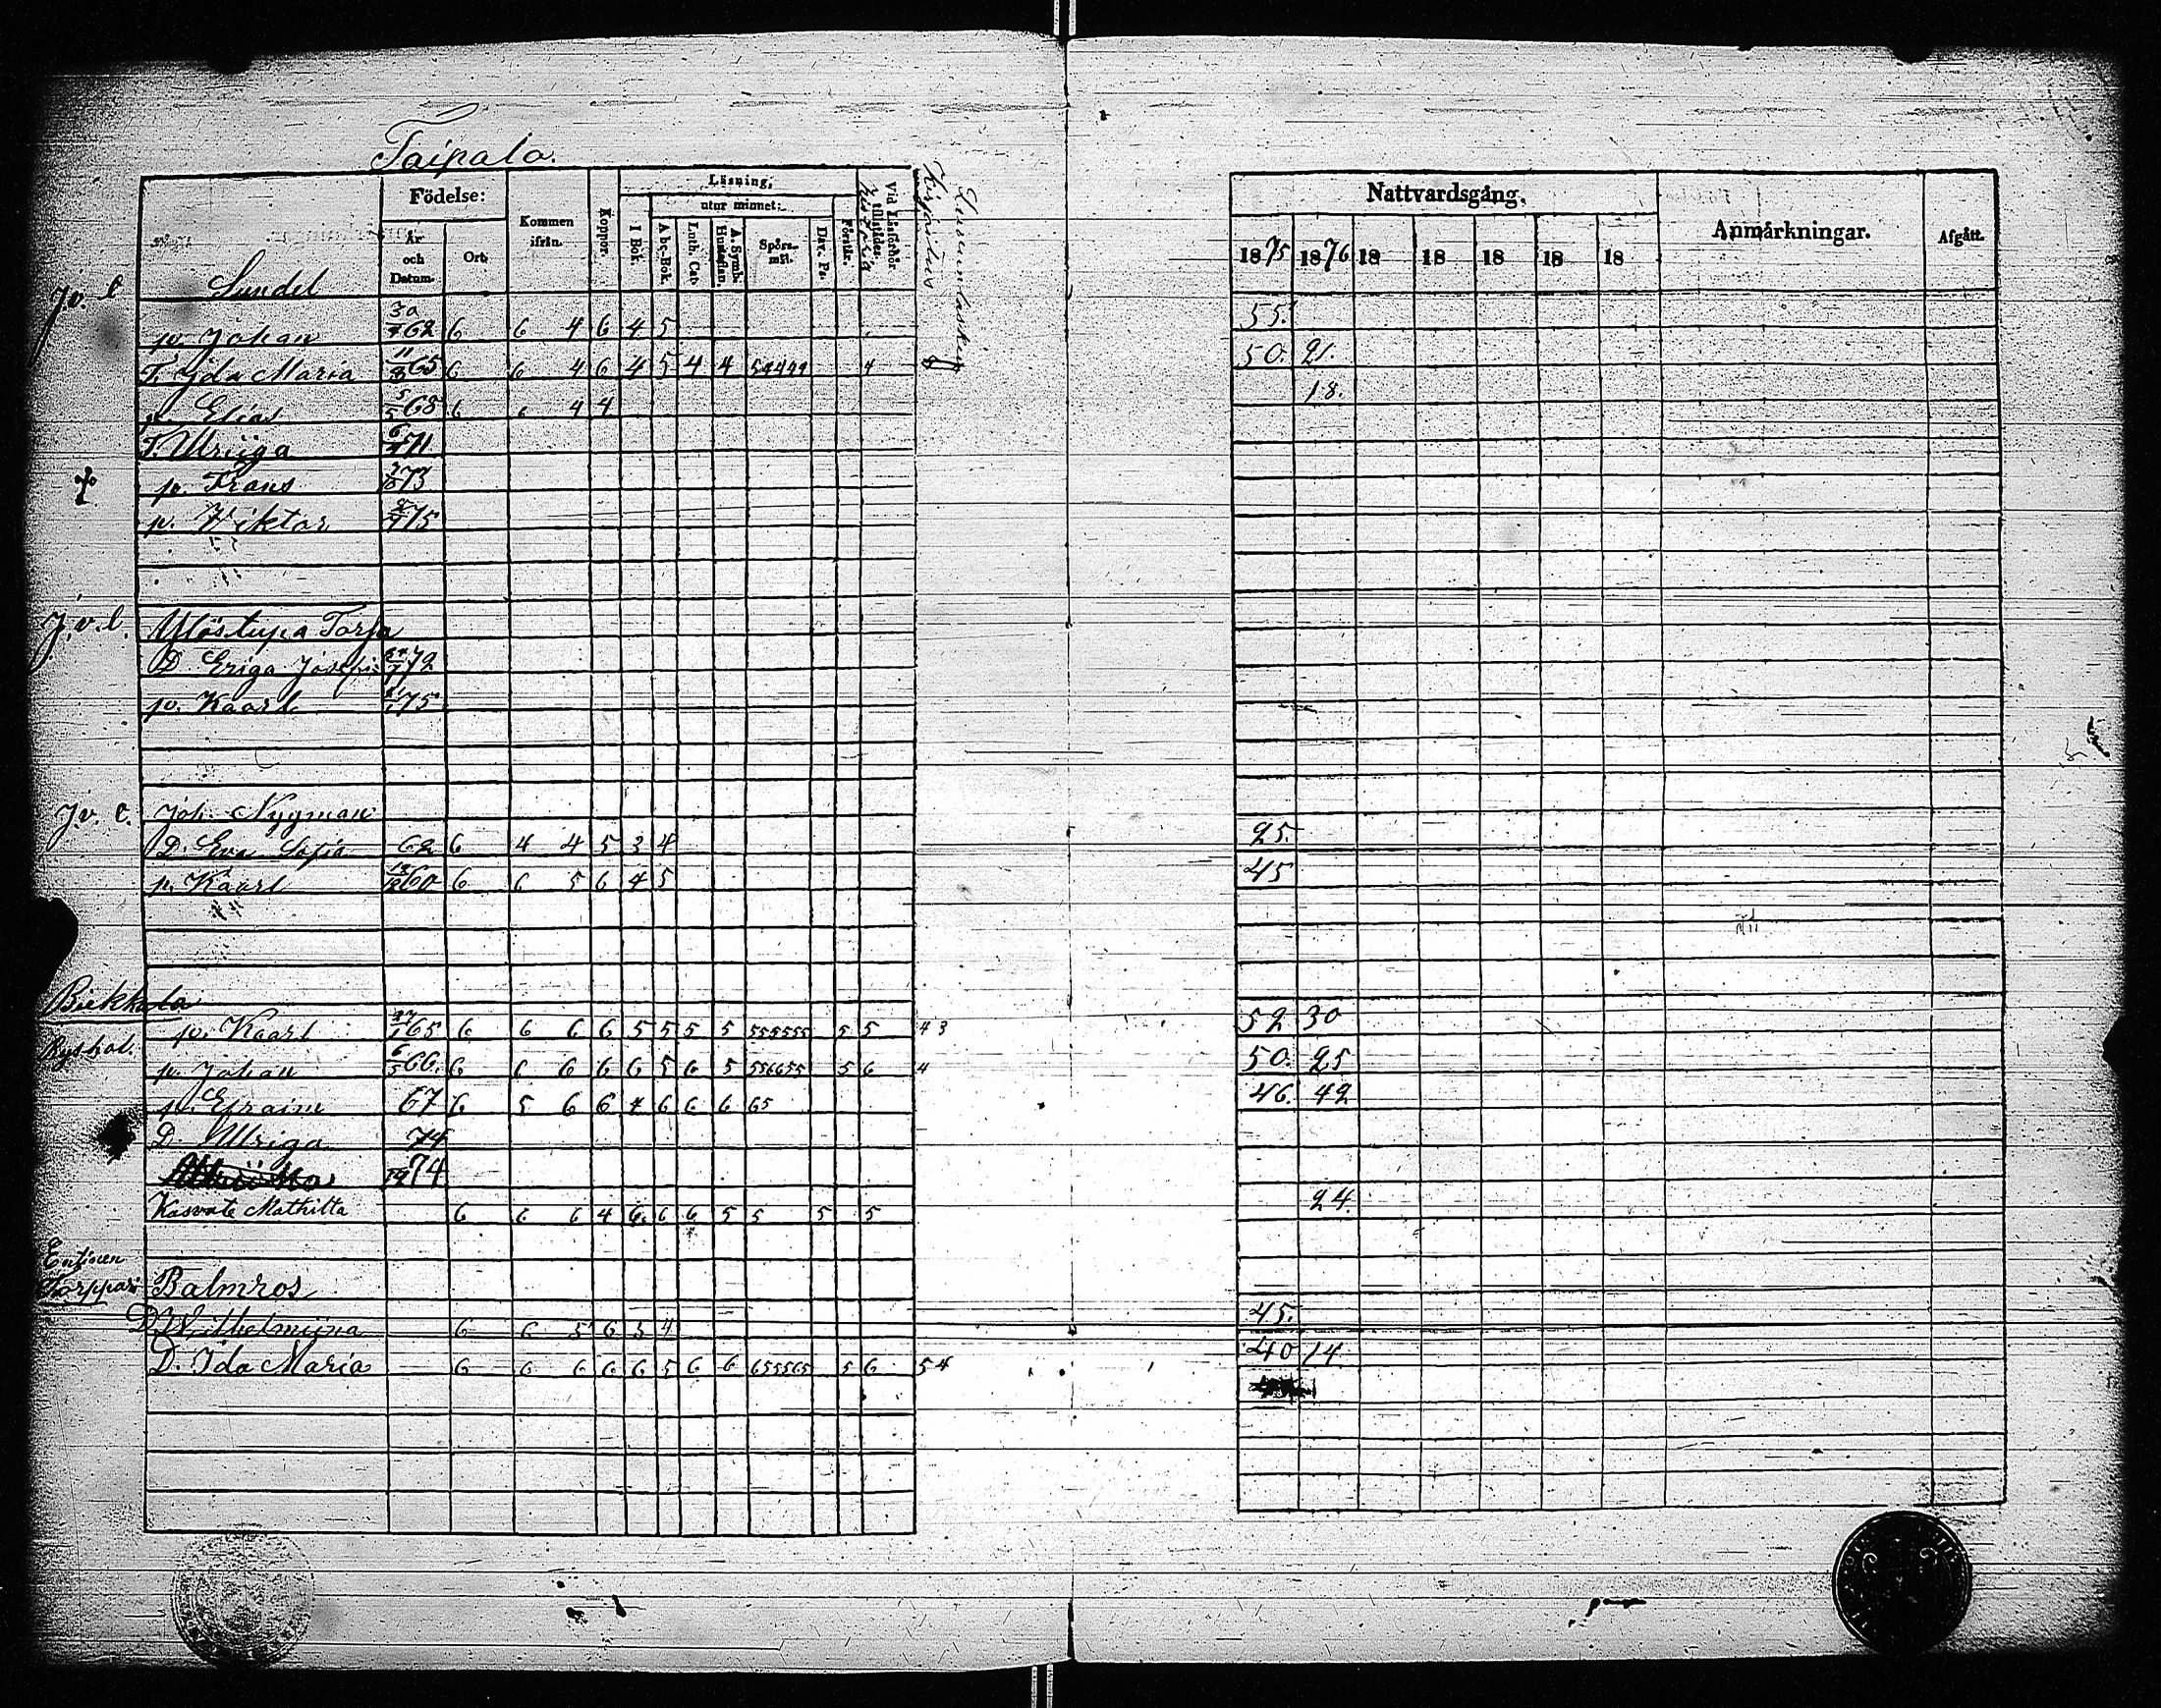 Taipala.
Födelse:
År och Datum.
Ort.
Kommen ifrån.
Koppor.
Läsning,
utur minnet:
I Bok.
Abc-Bok.
Luth. Cat.
A. Symb. Hustaflan.
Spörsmål.
Dav. Ps.
Förstår.
Vid Läsförhör tillstädes.
Nattvardsgång.
1875 1876 18 18 18 18 18
Anmärkningar.
Afgått.
J.v. l Sundel
p. Johan 30/4 62 6 6 4 6 4 5 55.
T. Ida Maria 11/8 65 6 6 4 6 4 5 4 4 54444 4 50. 21.
p. Elias 5/5 68 6 6 4 4 18.
T. Ulriiga 6/4 71
p. Frans 73
p. Viktor 75
J.v.l. Ylöstupa Torpa
D. Eriga Josefi 72
p. Kaarl 75
J.v. l. Joh. Nygman
D. Eva Sofia 62 6 4 4 5 3 4 25.
p. Kaarl 60 6 6 5 6 4 5 45
Biekkola
p. Kaarl 27/1 65 6 6 6 6 5 5 5 5 555555 5 5 43 52 30
p. Johan 6/5 66. 6 6 6 6 6 5 6 5 556655 5 6 4 50. 25
p. Efraim 67 6 5 6 6 4 6 6 6 65 46. 42
D. Ulriga 74
74
Kasvate Mathilta 6 6 6 4 6. 6 6 5 5 5 5 24.
Entinen
Torppari Balmros
D. Wilhelmiina 6 6 5 6 3 4 45.
D. Ida Maria 6 6 6 6 6 5 6 6 655565 5 6 54 40 14.